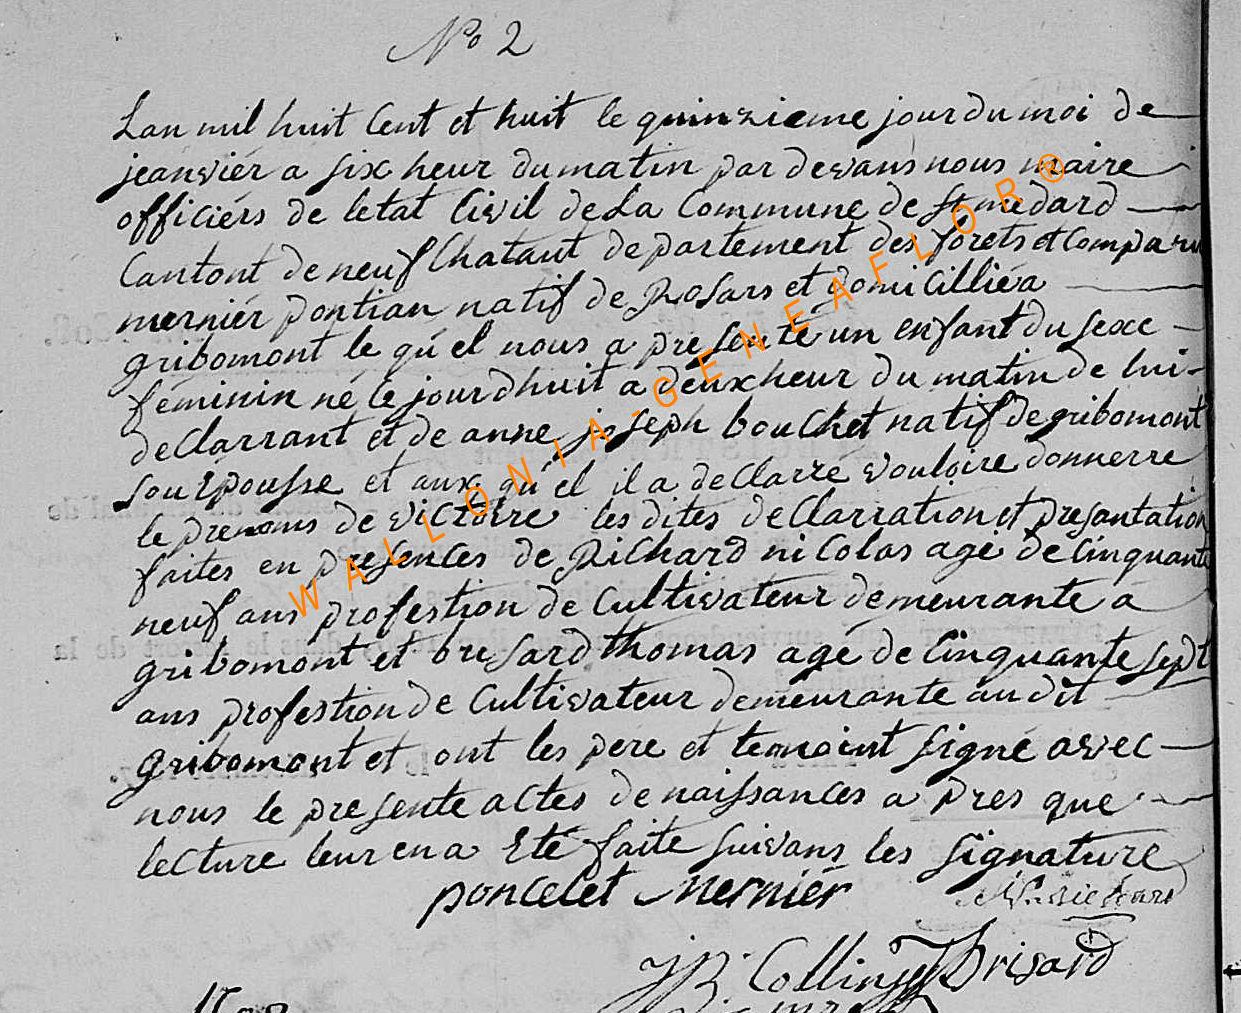 No 2
Lan mil huit Cent et huit le quinzieme jour du moi de
jeanviér a six heur du matin par devans nous maire
officiérs de letat Civil de La Commune de st medard
Cantont de neuf Chataut departement des forets et Comparu
merniér pontian natif de Rosars et domicilliéa
gribomont le qu'el nous a presenté un enfant du sexe
féminin né le jourdhuit a deux heur du matin de lui
declarrant et de anne joseph bouchet natif de gribomont
sou Epousse et aux qu'el il a declarré vouloire donnerre
le prenoms de victoire les dites declarration et presantation
faites en presences de Richard nicolas agé de cinquante
neuf ans profestion de Cultivateur demeurante a
gribomont et bresard thomas agé de Cinquante sept
ans profestion de Cultivateur demeurante au dit
gribomont et ont les pere et temoint signé avec
nous le presente actes de naissances a pres que
lecture leur en a Eté faite suivans les signature
poncelet merniér N. Richard
JB. Collin Brisard
WALLONIA-GENEAFLOR®